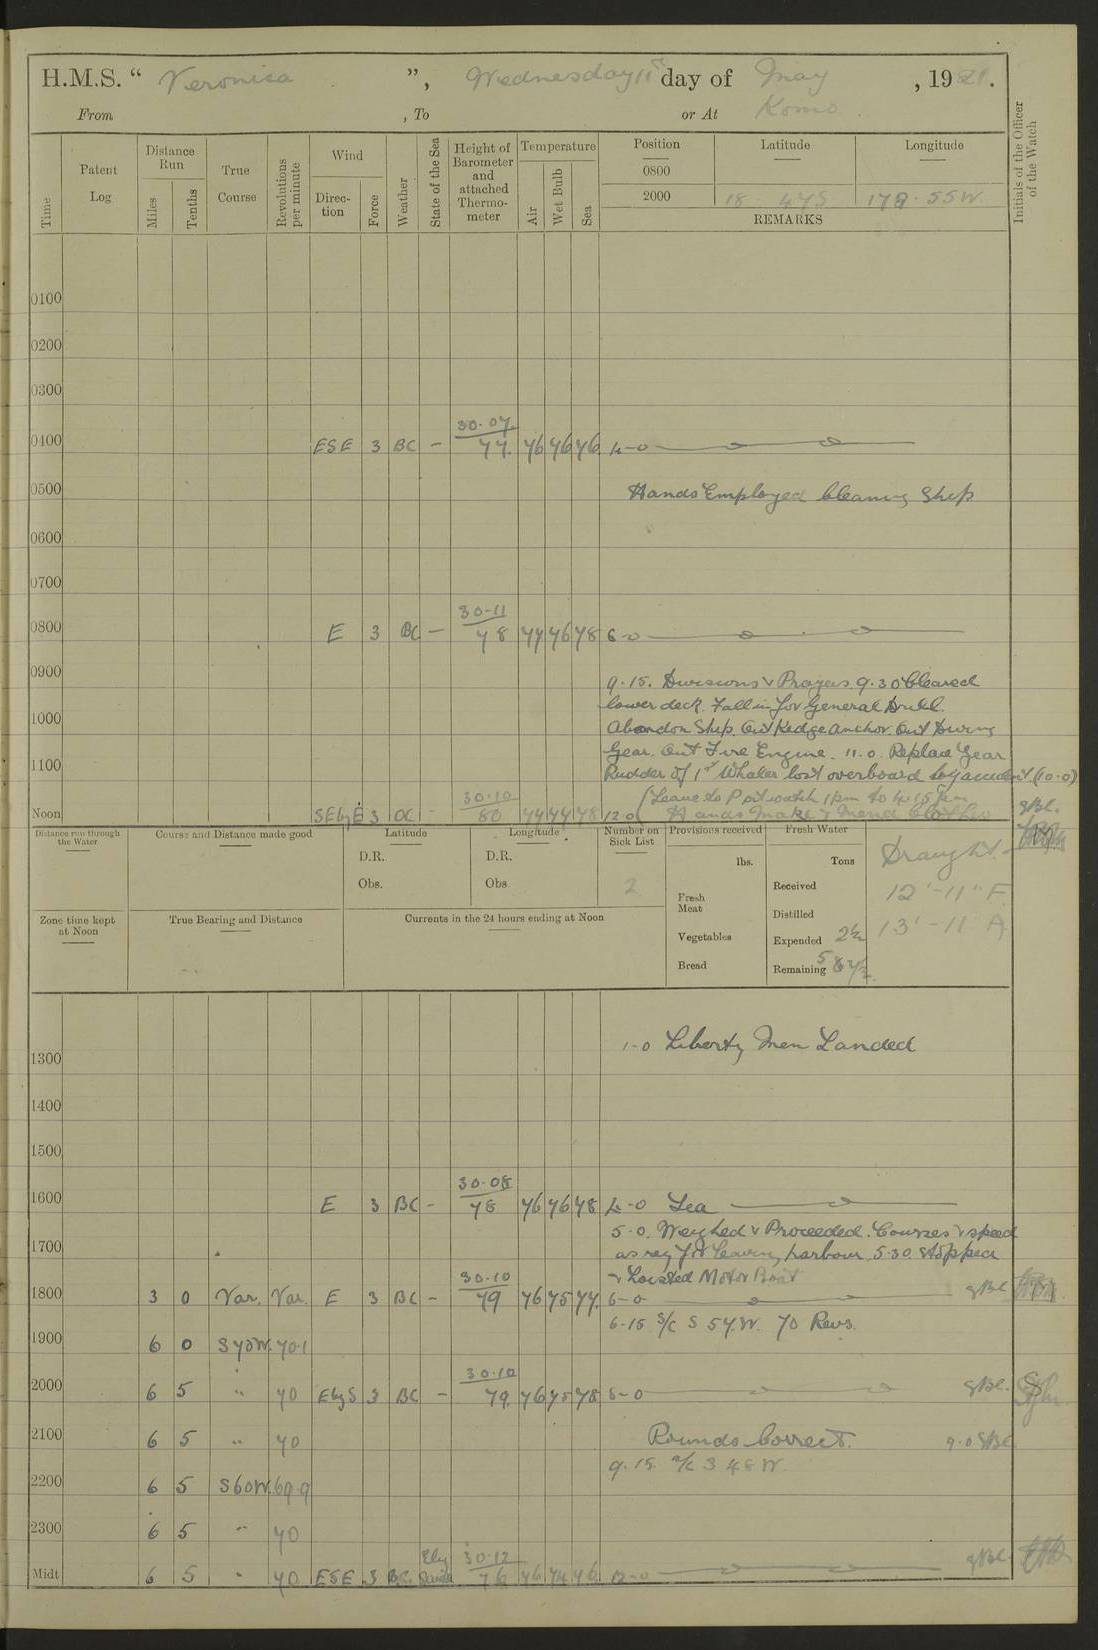 H.M.S. “ Veronica ”, Wednesday 11th day of May , 1921.
From , To or At Komo
Time
Patent Log
Distance Run
Miles
Tenths
True Course
Revolutions per minute
Wind
Direction
Force
Weather
State of the Sea
Height of Barometer and attached Thermometer
Temperature
Air
Wet Bulb
Sea
Position
Latitude
Longitude
0800
2000 18 47S 178.55W
REMARKS
Initials of the Officer of the Watch
0100
0200
0300
30.07
0400 ESE 3 BC – 77. 76 76 76 4-0
0500 Hands Employed Cleaning Ship
0600
0700
30-11
0800 E 3 BC – 78 77 76 78
0900 9.15. Divisions & Prayers. 9.30 Cleared
lower deck. Fall in for General Drill.
1000 Abandon Ship. Out Kedge Anchor. Out Diving
Gear. Out Fire Engine. 11.0. Replace Gear
1100 Rudder of 1st Whaler lost overboard by accident (10-0)
(Leave to Port watch 1pm to
30-10
Noon SEbyE 3 OC – 80 77 77 78 12.0 Hands Make & Mend Clothes
Distance run through the Water
Course and Distance made good
Latitude
D.R.
Obs.
Longitude
D.R.
Obs
Number on Sick List
2
Provisions received
lbs.
Fresh Meat
Vegetables
Bread
Fresh Water
Tons
Received
Distilled
Expended 2½
Remaining
Draught.
12'-11" F.
13'-11 A
Zone time kept at Noon
True Bearing and Distance
Currents in the 24 hours ending at Noon
1300 1-0 Liberty Men Landed
1400
1500
30-08
1600 E 3 BC – 78 76 76 78 4-0 Tea
5.0. Weighed & Proceeded. Courses & speed
1700 as req for leaving harbour. 5.30. Stopped
& hoisted Motor Boat
30-10
1800 3 0 Var. Var. E 3 BC – 79 76 75 77. 6-0
6-15 S/C S 57.W. 70 Revs.
1900 6 0 S70W. 70.1
30.10
2000 6 5 " 70 EbyS 3 BC – 79. 76 75 78
2100 6 5 " 70 Rounds Correct. 9.0
9.15. A/C S 48 W.
2200 6 5 S60W. 69.9
2300 6 5 " 70
30.12
Midt 6 5 " 70 ESE 3 BC. 76 76 74 76 12-0